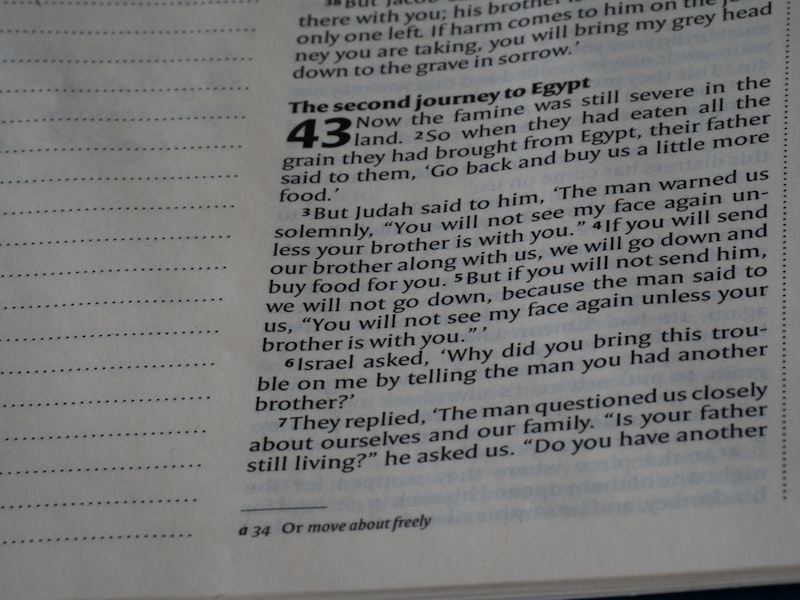 38 But Jacob
there with you; his brother is
only one left. If harm comes to him on the jour-
ney you are taking, you will bring my grey head
down to the grave in sorrow.’
The second journey to Egypt
43 Now the famine was still severe in the
land. 2 So when they had eaten all the
grain they had brought from Egypt, their father
said to them, ‘Go back and buy us a little more
food.’
3 But Judah said to him, ‘The man warned us
solemnly, “You will not see my face again un-
less your brother is with you.” 4 If you will send
our brother along with us, we will go down and
buy food for you. 5 But if you will not send him,
we will not go down, because the man said to
us, “You will not see my face again unless your
brother is with you.” ’
6 Israel asked, ‘Why did you bring this trou-
ble on me by telling the man you had another
brother?’
7 They replied, ‘The man questioned us closely
about ourselves and our family. “Is your father
still living?” he asked us. “Do you have another
a 34 Or move about freely